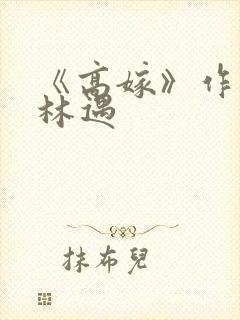 《高嫁》作
林遇
抹布兒